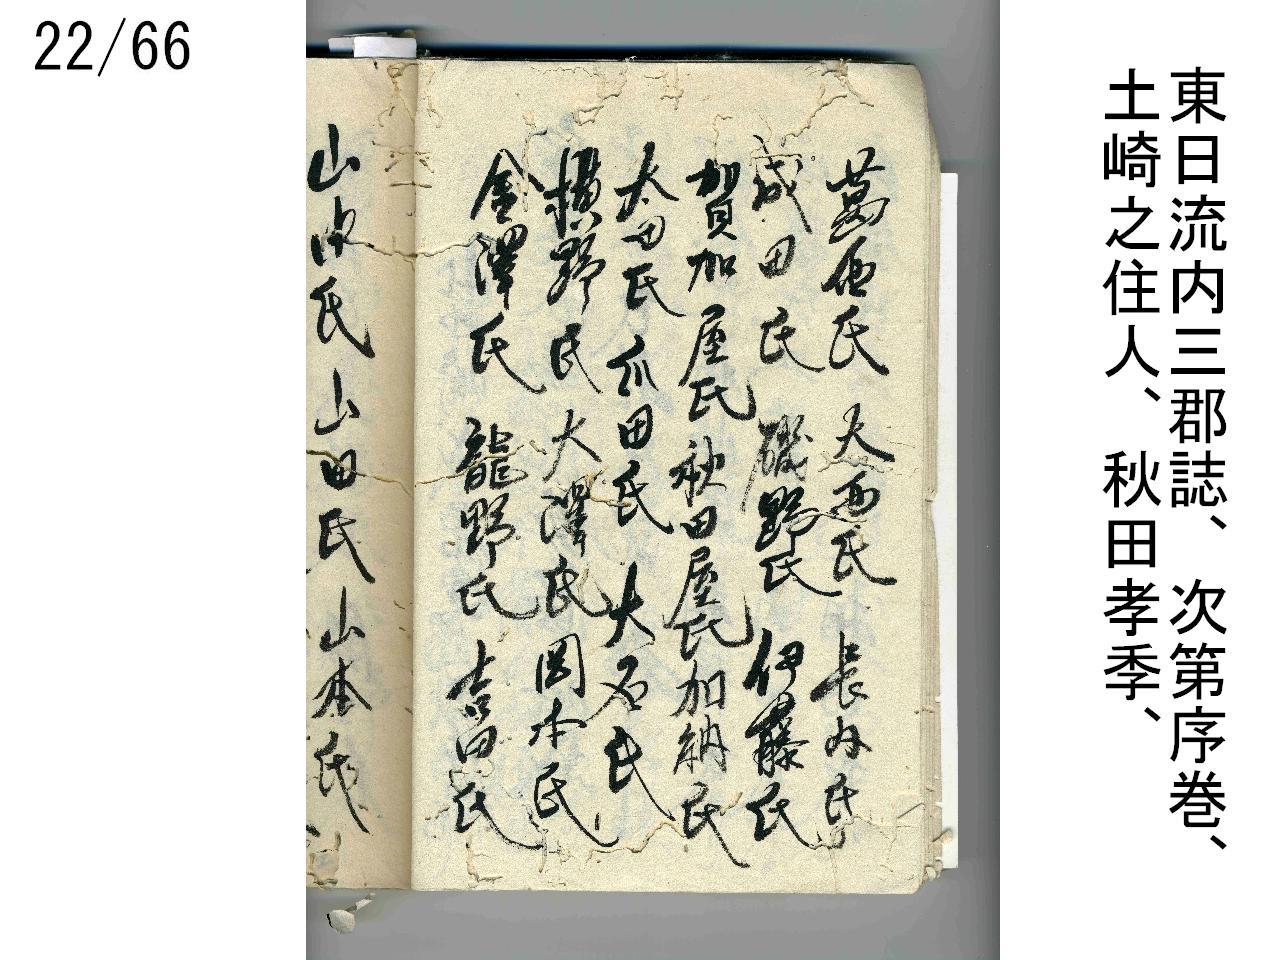 22/66
東日流内三郡誌、次第序巻、
土崎之住人、秋田孝季、
葛西氏 大西氏 長内氏
成田氏 磯野氏 伊藤氏
賀加屋氏 秋田屋氏 加納氏
太田氏 瓜田氏 大石氏
横野氏 大澤氏 岡本氏
金澤氏 龍野氏 吉田氏
山内氏 山田氏 山本氏